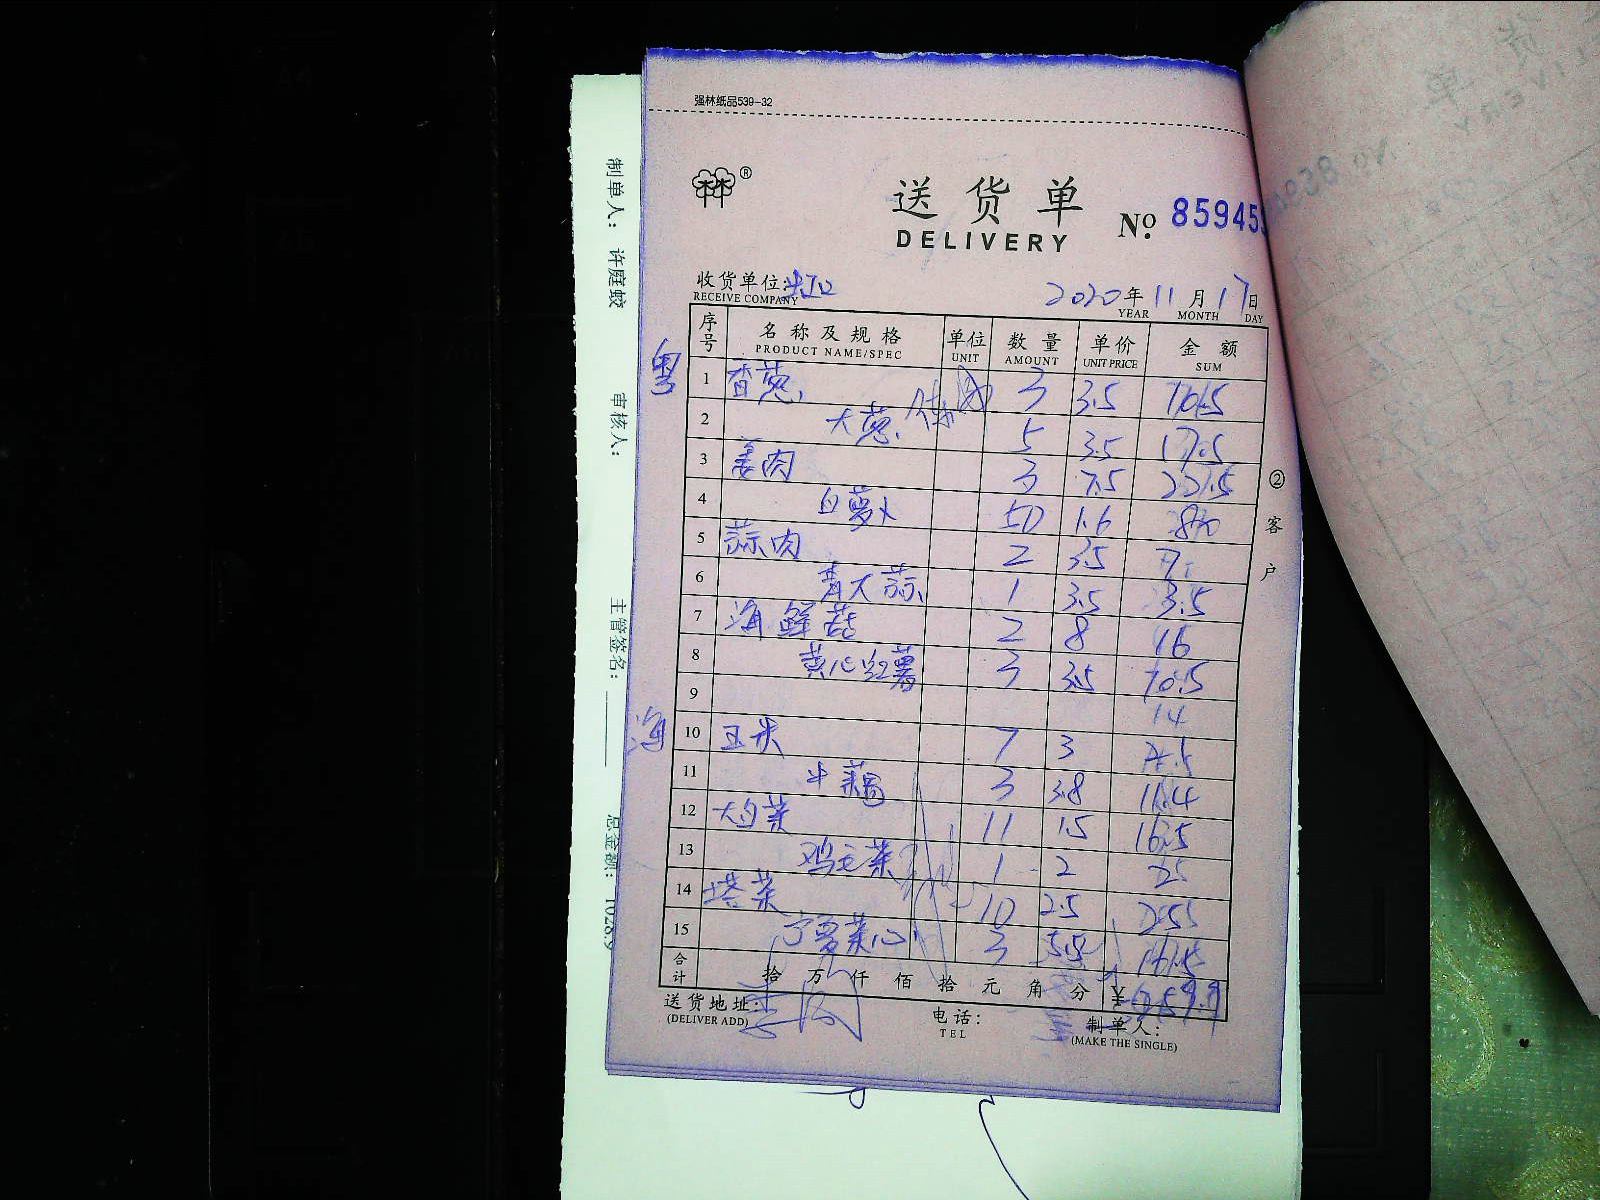 强林纸品539-32
送货单
DELIVERY
№ 85945
收货单位: 虹口
RECEIVE COMPANY
2020年11月17日
YEAR MONTH DAY
序号 名称及规格 单位 数量 单价 金额
PRODUCT NAME/SPEC UNIT AMOUNT UNIT PRICE SUM
粤
1 香葱 3 3.5 10.5
2 大葱 5 3.5 17.5
3 姜肉 3 7.5 22.5
4 白萝卜 50 1.6 80
5 蒜肉 2 3.5 7
6 青大蒜 1 3.5 3.5
7 海鲜菇 2 8 16
8 黄心红薯 3 3.5 10.5
9 14
海
10 玉米 7 3
11 3 3.8 11.4
12 大白菜 11 1.5 16.5
13 鸡毛菜 1 2 2
14 塔菜 10 2.5 25
15 宁夏菜心 3 5.5 16.5
合计 拾 万 仟 佰 拾 元 角 分 ¥
送货地址:
(DELIVER ADD)
电话:
TEL
制单人:
(MAKE THE SINGLE)
②客户
制单人: 许庭蛟
审核人:
主管签名:
总金额: 1028.9